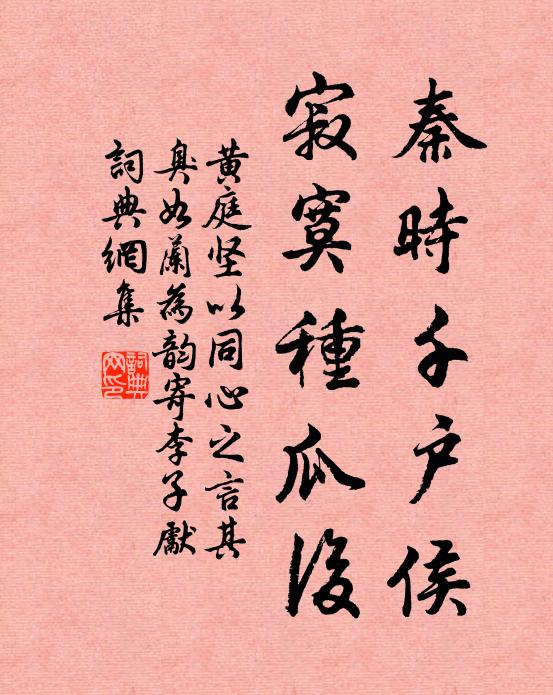 秦時千户侯
寂寞種瓜後
黄庭坚以同心之言其
臭如蘭為韵寄李子獻
詞典網集
詞典
网印